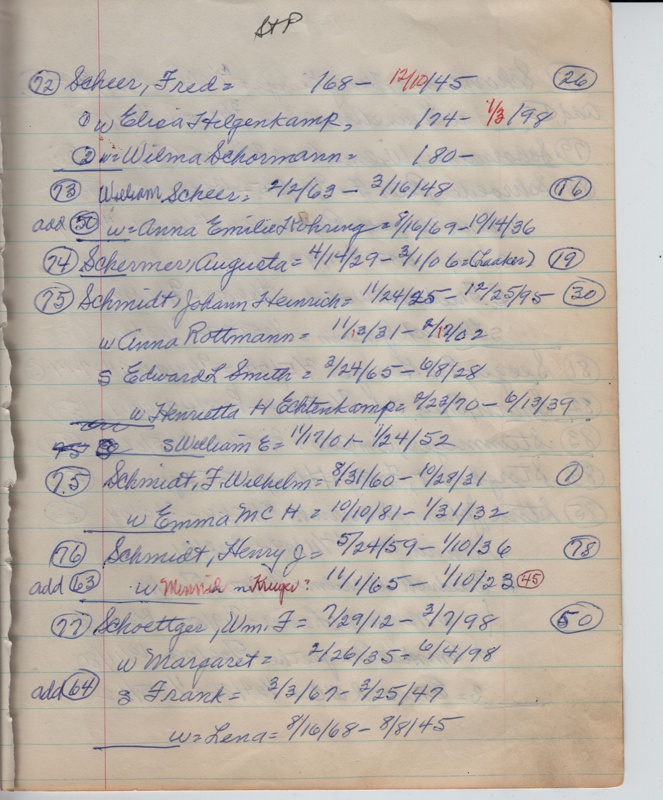 StP
72 Scheer, Fred = 168 - 12/10/45 26
① w Elica Hilgenkamp, 174 - 1/3/98
② w = Wilma Schormann = 180 -
73 William Scheer = 2/2/63 - 3/16/48 16
add 50 w = Anna Emilie Kohring = 9/16/69 - 10/14/36
74 Schermer, Augusta = 4/14/29 - 3/1/06 = (Laaker) 19
75 Schmidt, Johann Heinrich = 11/24/25 - 12/25/95 30
w Anna Rottmann = 11/13/31 - 2/17/02
s Edward L Smith = 3/24/65 - 6/8/28
w Henrietta H Echtenkamp = 2/23/70 - 6/13/39
s William E = 11/17/01 - 1/24/52
75 Schmidt, F. Wilhelm = 8/31/60 - 10/28/31 1
w Emma Mc H = 10/10/81 - 1/31/32
76 Schmidt, Henry J = 5/24/59 - 1/10/36 78
add 63 w Minnie n Kruger? 11/1/65 - 1/10/23 45
77 Schoettger, Wm. F = 7/29/12 - 3/7/98 50
w Margaret = 2/26/35 = 6/4/98
add 64 s Frank = 3/3/67 - 3/25/47
w = Lena = 8/16/68 - 8/8/45